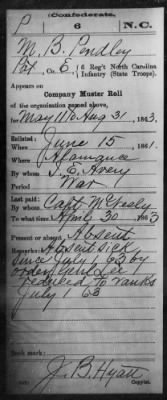 Confederate.
P 6 N.C.
M. B. Pendley
Pvt, Co. E, 6 Reg't North Carolina
Infantry (State Troops).
Appears on
Company Muster Roll
of the organization named above,
for May 1 to Aug 31, 1863.
Enlisted:
When June 15, 1861.
Where Alamance
By whom I. E. Avery
Period War
Last paid:
By whom Capt McGeely
To what time Apl 30, 1863
Present or absent Absent
Remarks: Absent sick
since July 1, 63 by
order
reduced to ranks
July 1 63
Book mark:
J. B. Hyatt
Copyist.